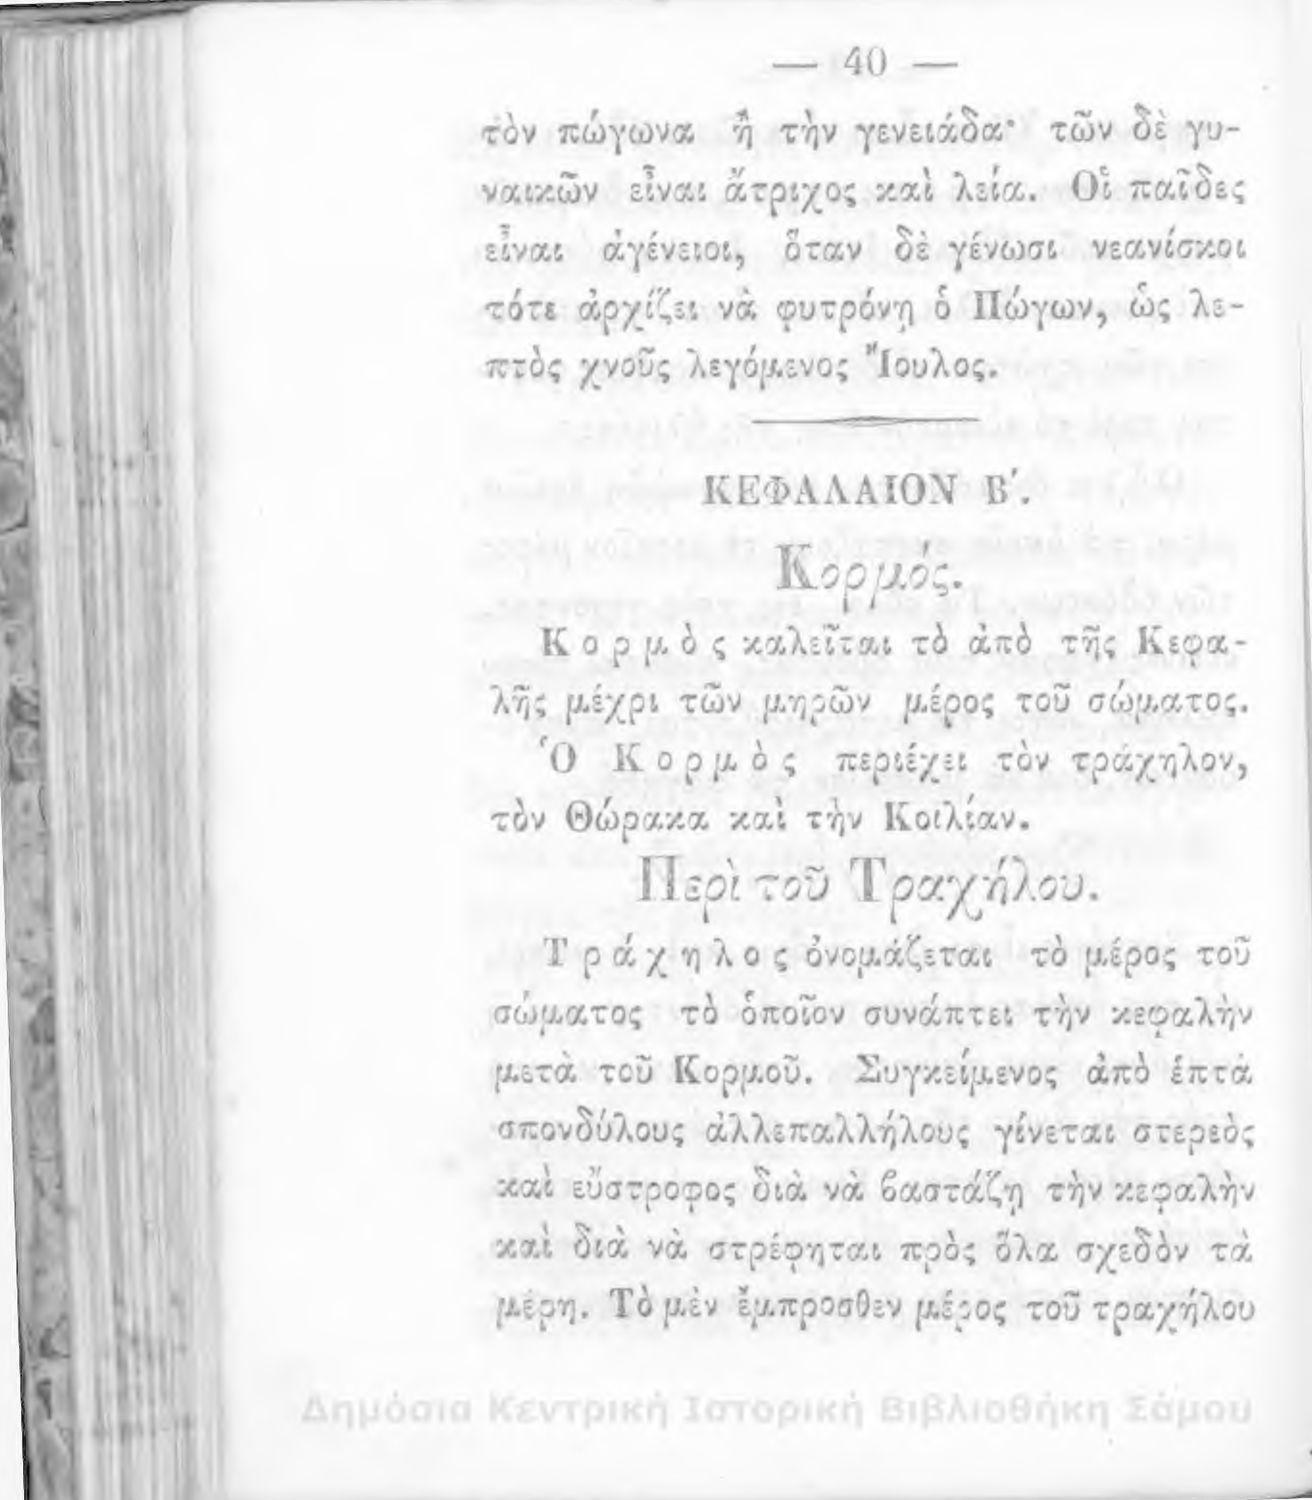 — 40 —
τὸν πώγωνα ἢ τὴν γενειάδα· τῶν δὲ γυ-
ναικῶν εἶναι ἄτριχος καὶ λεία. Οἱ παῖδες
εἶναι ἀγένειοι, ὅταν δὲ γένωσι νεανίσκοι
τότε ἀρχίζει νὰ φυτρόνῃ ὁ Πώγων, ὡς λε-
πτὸς χνοῦς λεγόμενος Ἴουλος.
ΚΕΦΑΛΑΙΟΝ Β΄.
Κορμός.
Κορμὸς καλεῖται τὸ ἀπὸ τῆς Κεφα-
λῆς μέχρι τῶν μηρῶν μέρος τοῦ σώματος.
Ὁ Κορμὸς περιέχει τὸν τράχηλον,
τὸν Θώρακα καὶ τὴν Κοιλίαν.
Περὶ τοῦ Τραχήλου.
Τράχηλος ὀνομάζεται τὸ μέρος τοῦ
σώματος τὸ ὁποῖον συνάπτει τὴν κεφαλὴν
μετὰ τοῦ Κορμοῦ. Συγκείμενος ἀπὸ ἑπτὰ
σπονδύλους ἀλλεπαλλήλους γίνεται στερεὸς
καὶ εὔστροφος διὰ νὰ βαστάζῃ τὴν κεφαλὴν
καὶ διὰ νὰ στρέφηται πρὸς ὅλα σχεδὸν τὰ
μέρη. Τὸ μὲν ἔμπροσθεν μέρος τοῦ τραχήλου
Δημόσια Κεντρική Ιστορική Βιβλιοθήκη Σάμου